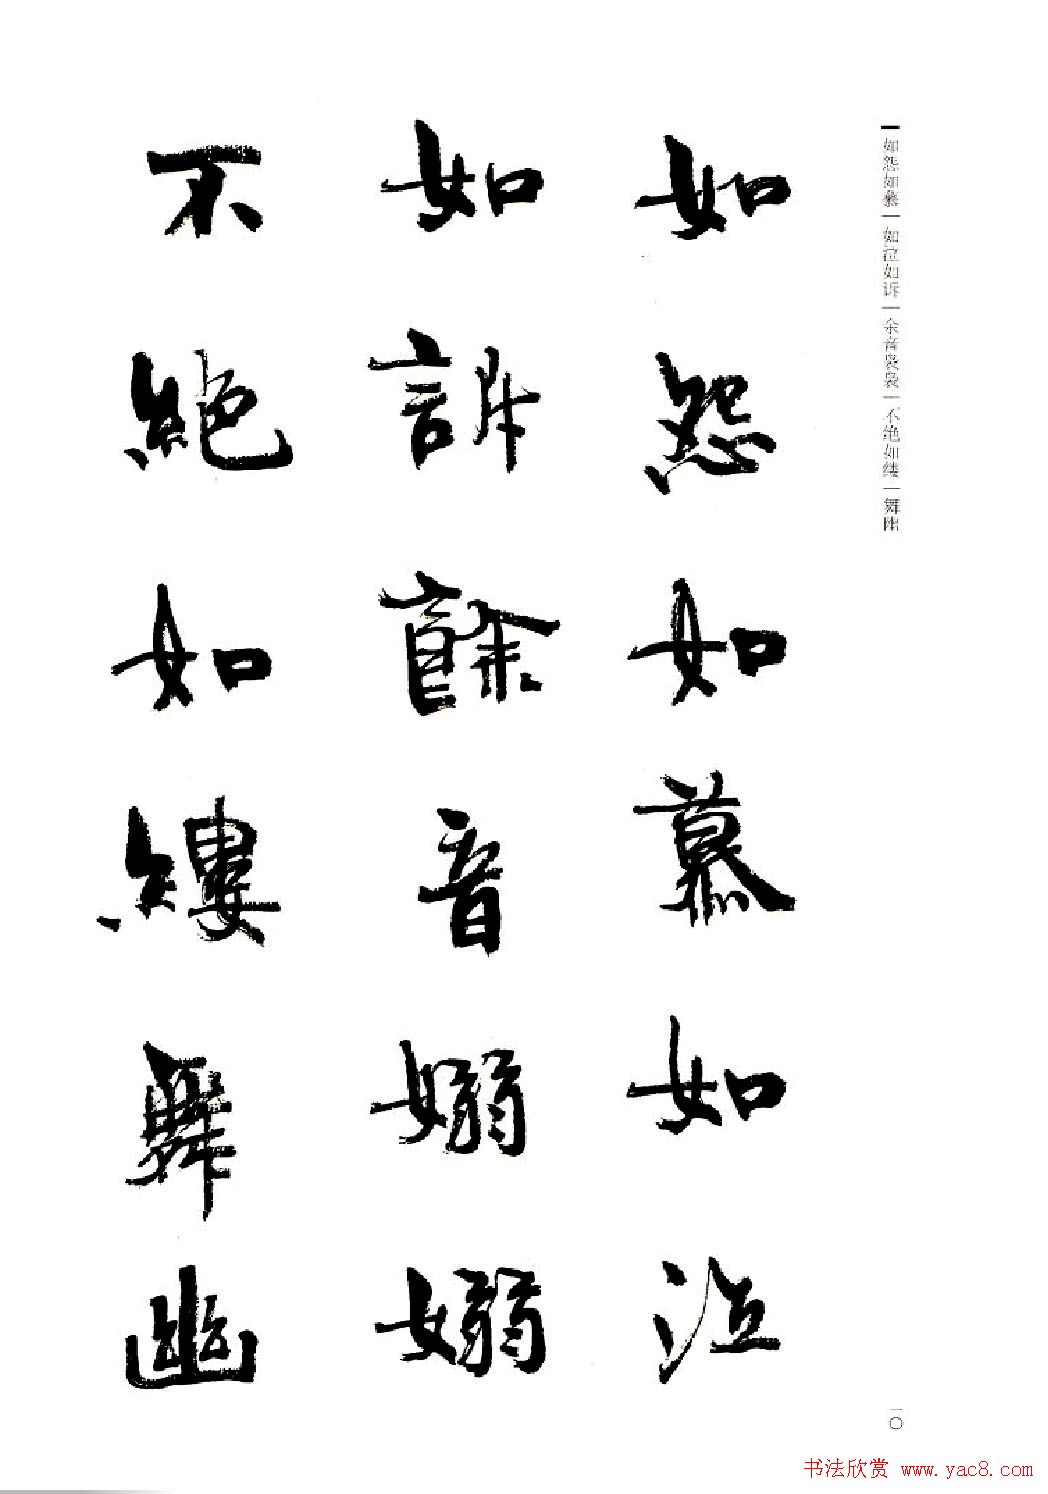 如怨如慕 如泣如诉 余音袅袅 不绝如缕 舞幽
如怨如慕如泣
如訴餘音嫋嫋
不絕如縷舞幽
一〇
书法欣赏 www.yac8.com